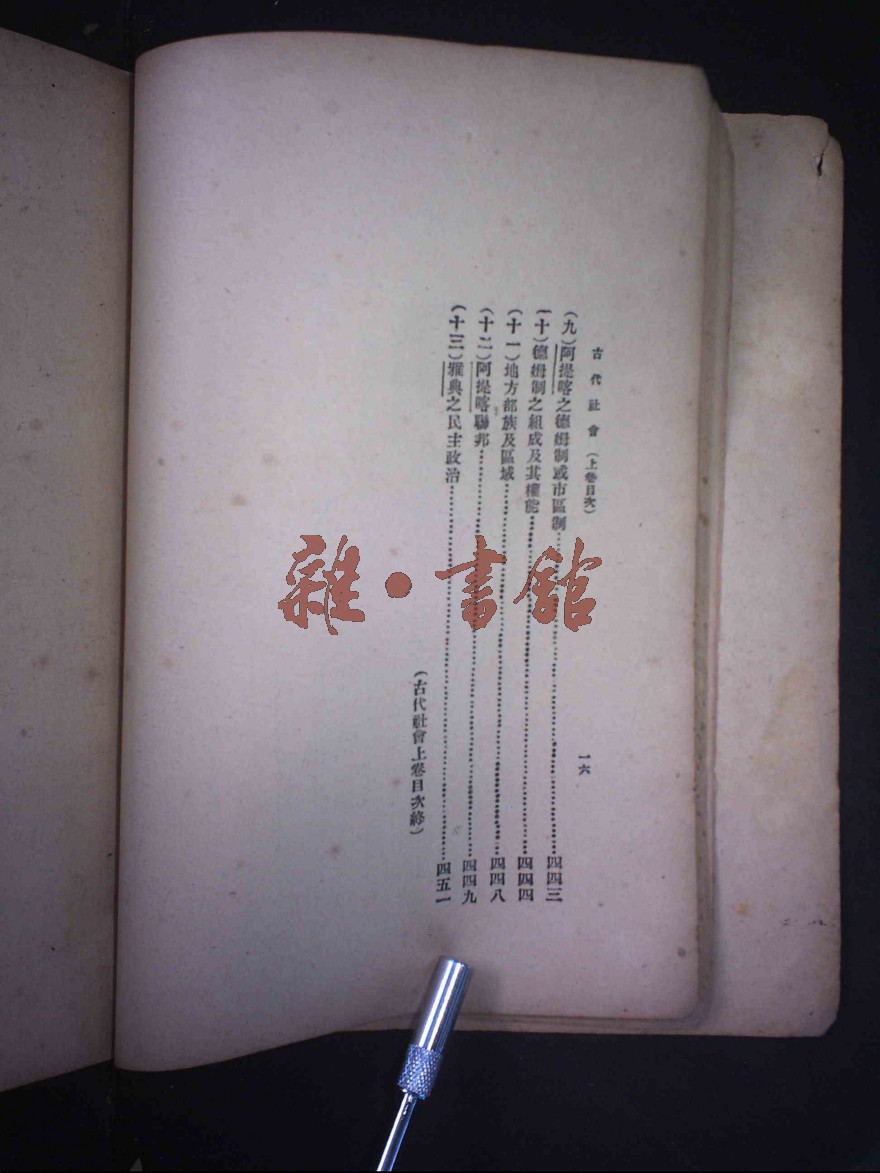 古代社會（上卷目次）
一六
（九）阿提喀之德姆制或市區制……四四三
（十）德姆制之組成及其權能……四四四
（十一）地方部族及區域……四四八
（十二）阿提喀聯邦……四四九
（十三）雅典之民主政治……四五一
（古代社會上卷目次終）
雜·書館